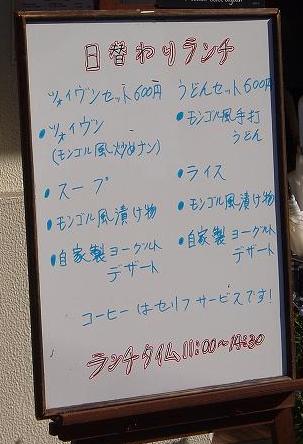 日替わりランチ
ツォイヴンセット600円
・ツォイヴン
(モンゴル風炒めナン)
・スープ
・モンゴル風漬け物
・自家製ヨーグルト
デザート
うどんセット600円
・モンゴル風手打
うどん
・ライス
・モンゴル風漬け物
・自家製ヨーグルト
デザート
コーヒーはセリフサービスです!
ランチタイム11:00~14:30